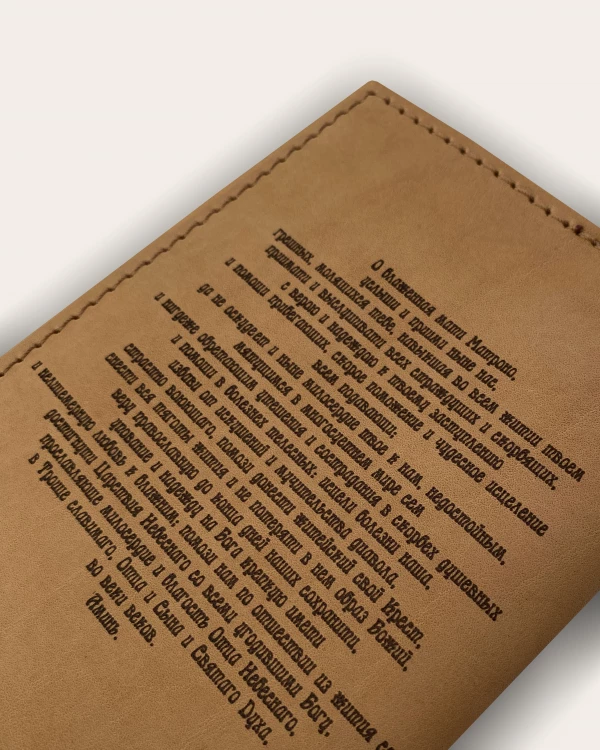 О блаженная мати Матроно,
услыши и приими ныне нас,
грешных, молящихся тебе, навыкшая во всем житии твоем
приимати и выслушивати всех страждущих и скорбящих,
с верою и надеждою к твоему заступлению
и помощи прибегающих, скорое поможение и чудесное исцеление
всем подавати;
да не оскудеет и ныне милосердие твое к нам, недостойным,
мятущимся в многосуетнем мире сем
и нигдеже обретающим утешения и сострадания в скорбех душевных
и помощи в болезнех телесных: исцели болезни наша,
избави от искушений и мучительства диавола,
страстно воюющаго, помози донести житейский свой Крест,
снести вся тяготы жития и не потеряти в нем образ Божий,
веру православную до конца дней наших сохранити,
упование и надежду на Бога крепкую имети
и нелицемерную любовь к ближним; помози нам по отшествии из жития се
достигнути Царствия Небеснаго со всеми угодившими Богу,
прославляюще милосердие и благость Отца Небеснаго,
в Троице славимаго, Отца и Сына и Святаго Духа,
во веки веков.
Аминь.